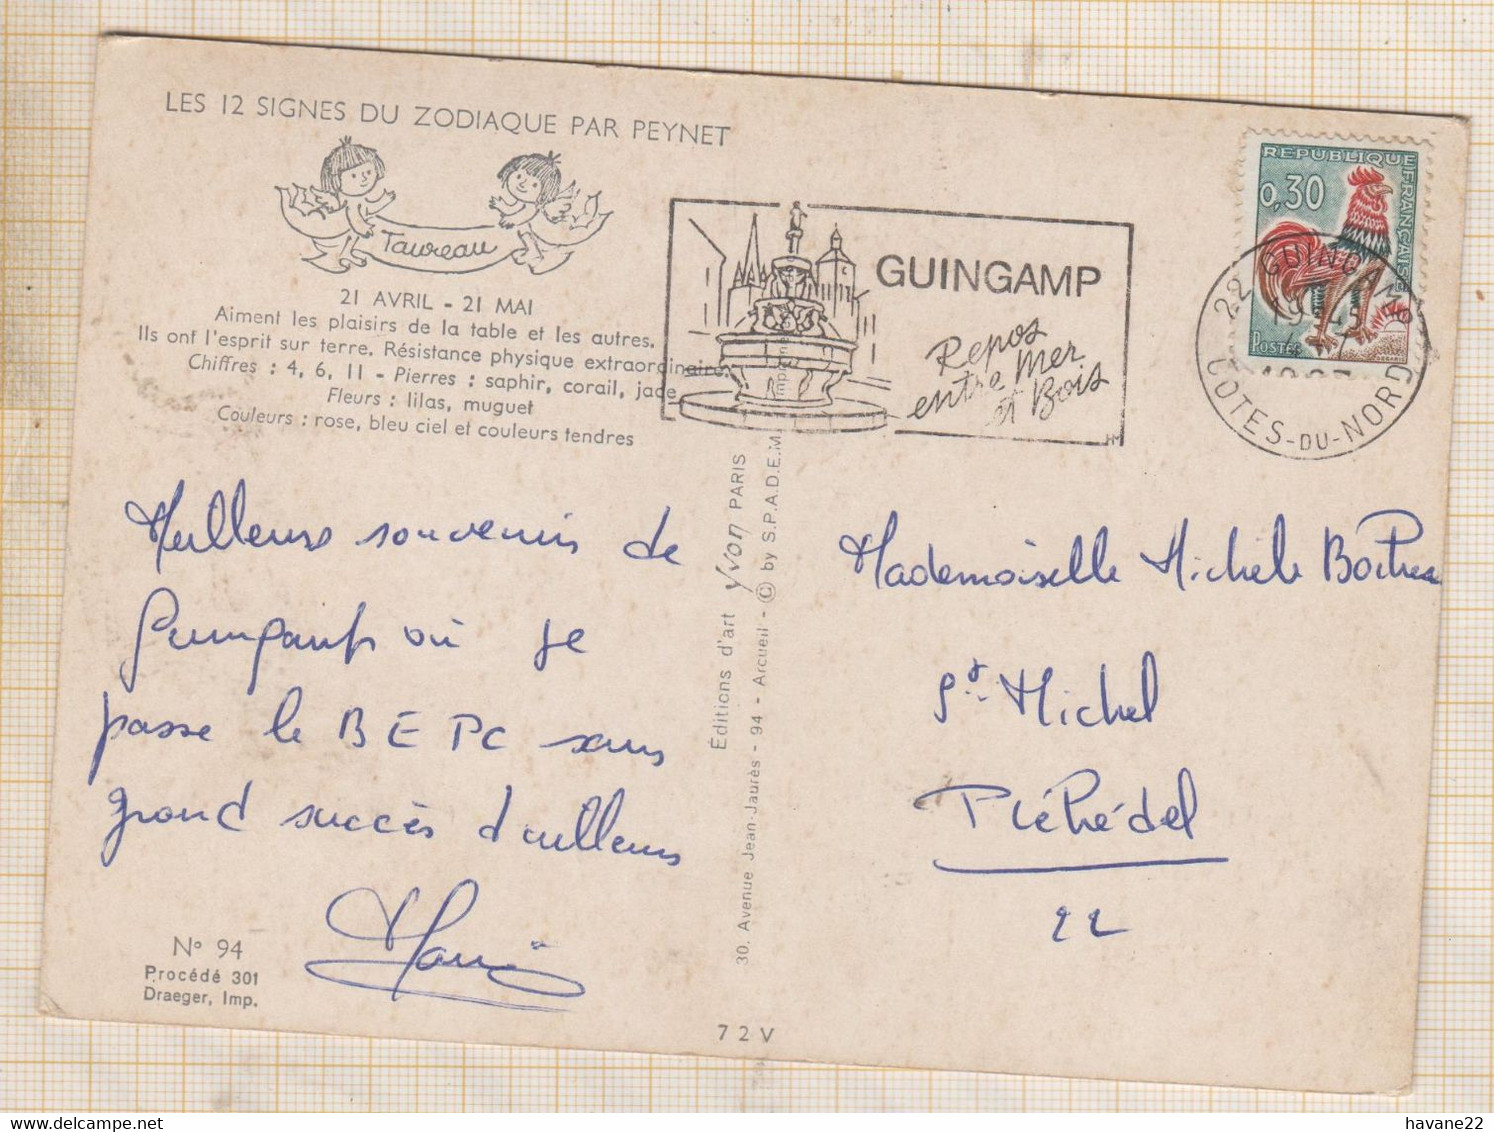 LES 12 SIGNES DU ZODIAQUE PAR PEYNET
Taureau
21 AVRIL - 21 MAI
Aiment les plaisirs de la table et les autres.
Ils ont l'esprit sur terre. Résistance physique extraordinaire.
Chiffres : 4, 6, 11 - Pierres : saphir, corail, jade
Fleurs : lilas, muguet
Couleurs : rose, bleu ciel et couleurs tendres
Meilleurs souvenirs de
Guingamp où je
passe le BEPC sans
grand succès d'ailleurs
N° 94
Procédé 301
Draeger, Imp.
72V
Éditions d'art Yvon PARIS
30, Avenue Jean-Jaurès - 94 - Arcueil - © by S.P.A.D.E.M.
GUINGAMP
Repos
entre Mer
et Bois
REPUBLIQUE FRANÇAISE
0,30
POSTES
22 GUINGAMP
COTES-DU-NORD
Mademoiselle Michèle
St Michel
Pléhédel
22
havane22